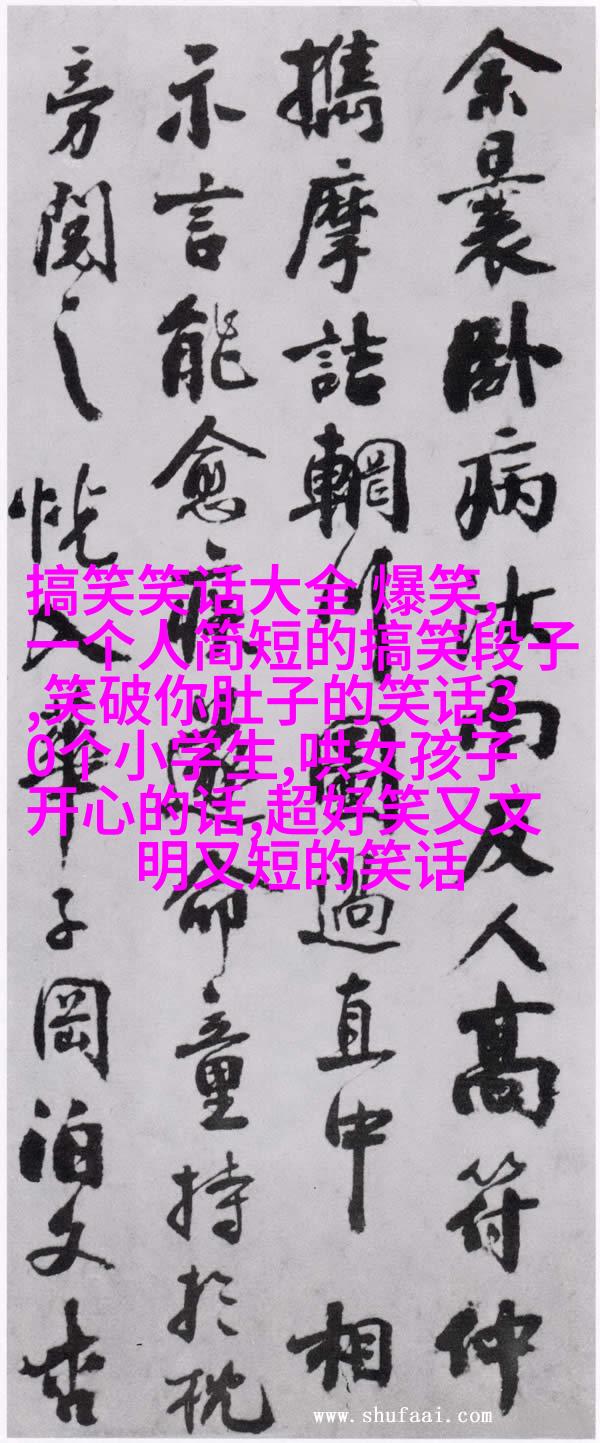 余曩卧病汝南友人高符仲
攜摩詰輞川圖過直中相
示言能愈疾遂命童持於枕
旁閱之恍入華子岡泊文杏
搞笑笑话大全 爆笑,
一个人简短的搞笑段子
,笑破你肚子的笑话3
0个小学生,哄女孩子
开心的话,超好笑又文
明又短的笑话
www.shufaai.com